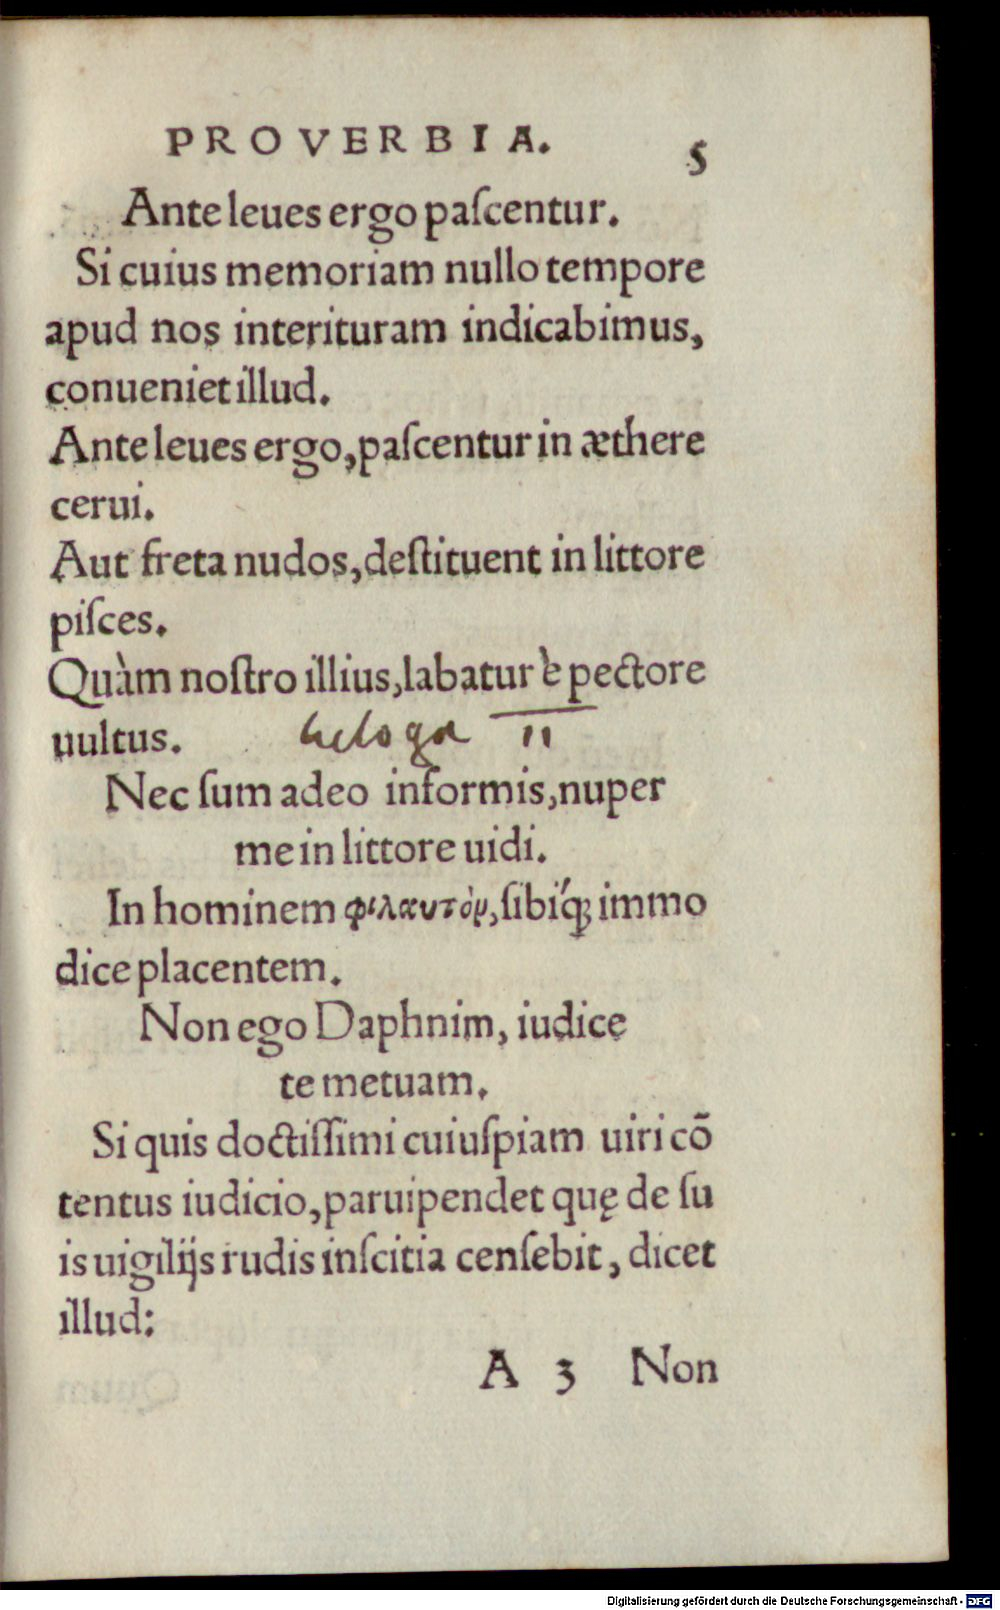 PROVERBIA. 5
Ante leues ergo paſcentur.
Si cuius memoriam nullo tempore
apud nos interituram indicabimus,
conueniet illud.
Ante leues ergo, paſcentur in æthere
cerui.
Aut freta nudos, deſtituent in littore
piſces.
Quàm noſtro illius, labatur è pectore
uultus.
II
Nec ſum adeo informis, nuper
me in littore uidi.
In hominem φιλαυτὸν, ſibíq; immo
dice placentem.
Non ego Daphnim, iudice
te metuam.
Si quis doctiſſimi cuiuſpiam uiri cõ
tentus iudicio, paruipendet quę de ſu
is uigilijs rudis inſcitia cenſebit, dicet
illud:
A 3 Non
Digitalisierung gefördert durch die Deutsche Forschungsgemeinschaft - DFG